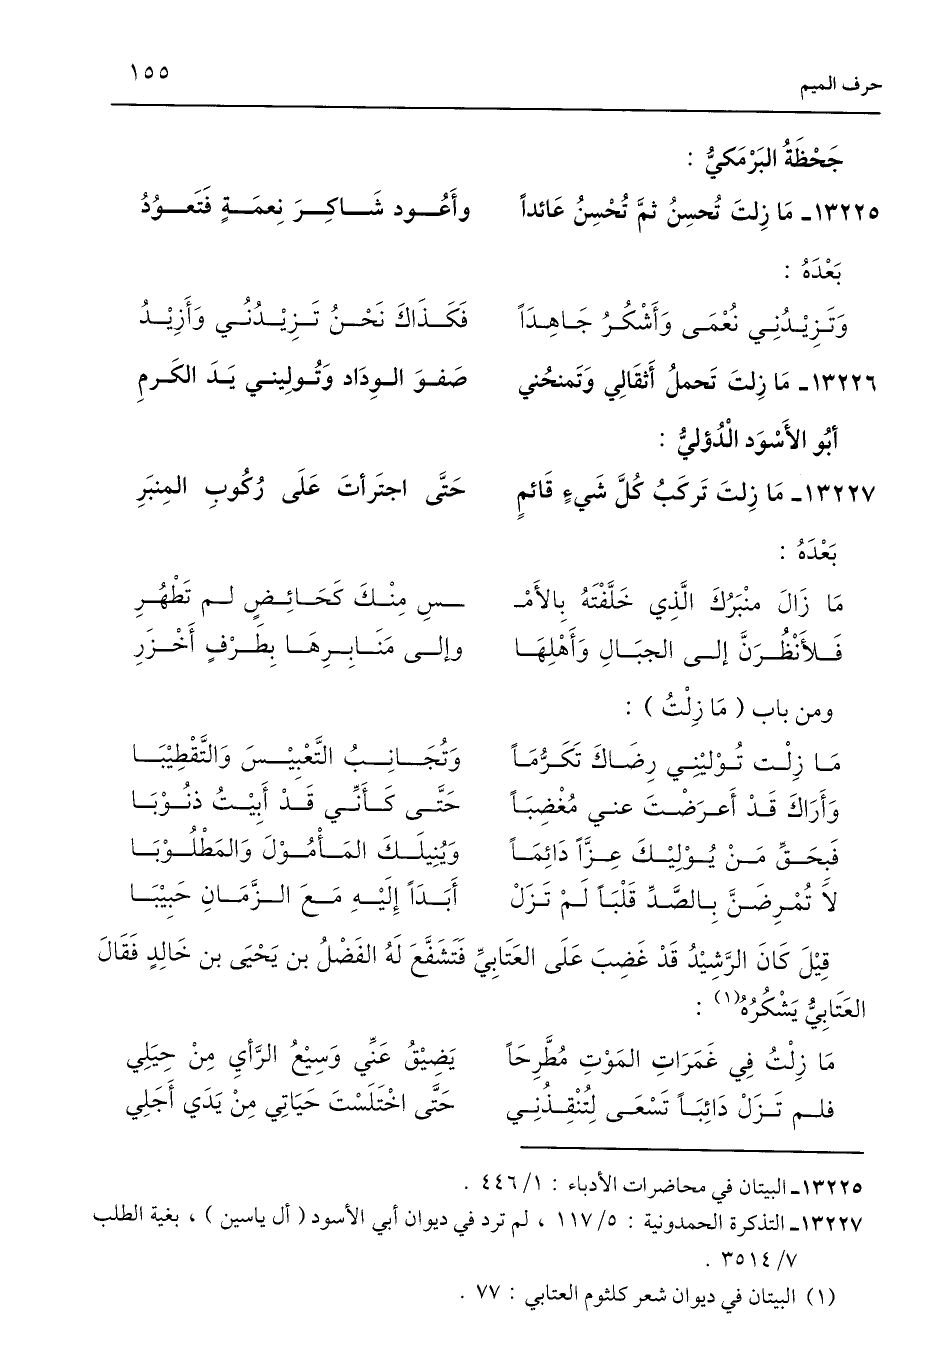 ١٥٥
حرف الميم
جَحْظَةُ البَرْمَكيُّ :
١٣٢٢٥- مَا زِلتَ تُحسِنُ ثمَّ تُحْسِنُ عَائداً وأَعُود شَاكِرَ نِعمَةٍ فَتَعوُدُ
بَعْدَهُ :
وَتَزِيْدُنِي نُعْمَى وَأَشْكُرُ جَاهِدَاً فَكَذَاكَ نَحْنُ تَزِيْدُنُي وَأَزِيْدُ
١٣٢٢٦- مَا زِلتَ تَحملُ أَثقَالِي وَتَمنحُني صَفوَ الوِدَاد وَتُوليني يَدَ الكَرمِ
أَبُو الأَسْوَد الْدُؤليُّ :
١٣٢٢٧- مَا زِلتَ تَركَبُ كُلَّ شَيءٍ قَائمٍ حَتَّى اجتَرأتَ عَلَى رُكُوبِ المِنبَرِ
بَعْدَهُ :
مَا زَالَ منْبَرُكَ الَّذِي خَلَّفْتَهُ بِالأَمْـ ـسِ مِنْكَ كَحَائِضٍ لم تَطْهُرِ
فَلأَنْظُرَنَّ إلى الجبَالِ وَأَهْلِهَا وإلى مَنَابِرِهَا بِطَرْفٍ أَخْزَرِ
ومن باب ( مَا زِلْتُ ) :
مَا زِلْت تُوْليْني رِضَاكَ تَكَرُّمَاً وَتُجَانِبُ التَّعْبِيْسَ وَالتَّقْطِيْبَا
وَأَرَاكَ قَدْ أَعرَضْتَ عني مُغْضِبَاً حَتَّى كَأَنِّي قَدْ أَتَيْتُ ذنُوْبَا
فَبحَقِّ مَنْ يُوْلِيْكَ عِزَّاً دَائِمَاً وَيُنِيلَكَ المَأْمُوْلَ وَالمَطْلُوْبَا
لاَ تُمْرِضَنَّ بِالصَّدِّ قَلْبَاً لَمْ تَزَلْ أَبَدَاً إِلَيْهِ مَعَ الزَّمَانِ حَبِيْبَا
قِيْلَ كَانَ الرَّشِيْدُ قَدْ غَضِبَ عَلَى العَتابِيِّ فَتَشَفَّعَ لَهُ الفَضْلُ بن يَحْيَى بن خَالِدٍ فَقَالَ
العَتَابِيُّ يَشْكُرُهُ(١) :
مَا زِلْتُ فِي غَمَرَاتِ المَوْتِ مُطَّرِحَاً يَضِيْقُ عَنِّي وَسِيْعُ الرَّأي مِنْ حِيَلِي
فلم تَزَلْ دَائِبَاً تَسْعَى لِتُنْقِذُنِي حَتَّى اخْتَلَسْتَ حَيَاتِي مِنْ يَدَي أَجَلِي
١٣٢٢٥- البيتان في محاضرات الأدباء : ١/ ٤٤٦ .
١٣٢٢٧- التذكرة الحمدونية : ٥/ ١١٧ ، لم ترد في ديوان أبي الأسود ( أل ياسين ) ، بغية الطلب
٧/ ٣٥١٤ .
(١) البيتان في ديوان شعر كلثوم العتابي : ٧٧ .